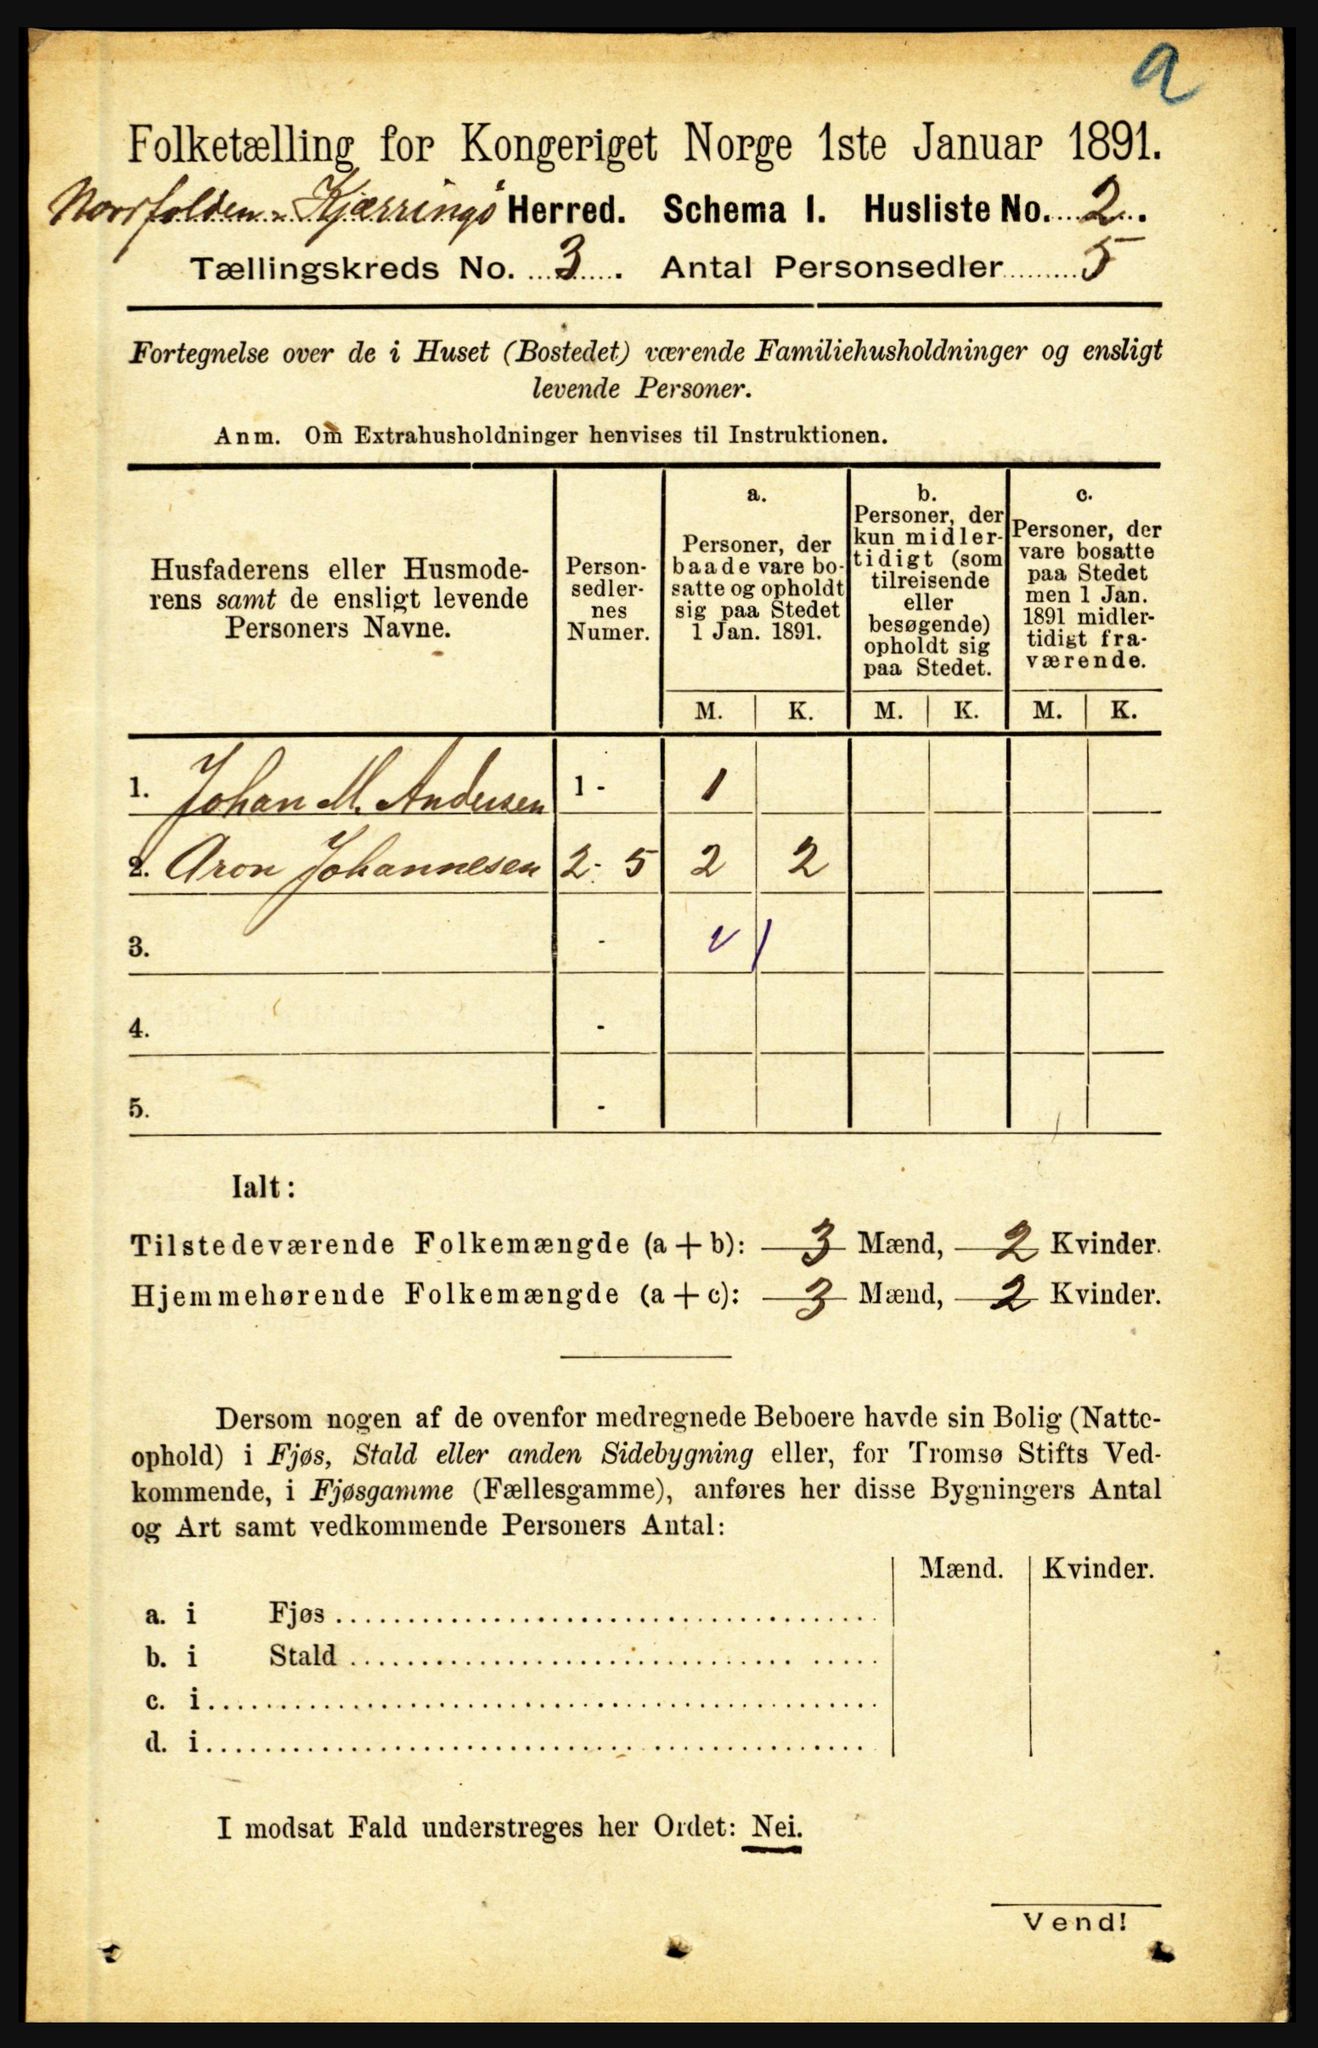 a
Folketælling for Kongeriget Norge 1ste Januar 1891.
Norfolden-Kjærringø Herred. Schema I. Husliste No. 2.
Tællingskreds No. 3. Antal Personsedler 5
Fortegnelse over de i Huset (Bostedet) værende Familiehusholdninger og ensligt
levende Personer.
Anm. Om Extrahusholdninger henvises til Instruktionen.
Husfaderens eller Husmode-
rens samt de ensligt levende
Personers Navne.
Person-
sedler-
nes
Numer.
a.
Personer, der
baade vare bo-
satte og opholdt
sig paa Stedet
1 Jan. 1891.
b.
Personer, der
kun midler-
tidigt (som
tilreisende
eller
besøgende)
opholdt sig
paa Stedet.
c.
Personer, der
vare bosatte
paa Stedet
men 1 Jan.
1891 midler-
tidigt fra-
værende.
M. K. M. K. M. K.
1. Johan M. Andersen 1 - 1
2. Aron Johannesen 2 - 5 2 2
3. -
4. -
5. -
Ialt:
Tilstedeværende Folkemængde (a + b): 3 Mænd, 2 Kvinder.
Hjemmehørende Folkemængde (a + c): 3 Mænd, 2 Kvinder.
Dersom nogen af de ovenfor medregnede Beboere havde sin Bolig (Natte-
ophold) i Fjøs, Stald eller anden Sidebygning eller, for Tromsø Stifts Ved-
kommende, i Fjøsgamme (Fællesgamme), anføres her disse Bygningers Antal
og Art samt vedkommende Personers Antal:
Mænd. Kvinder.
a. i Fjøs
b. i Stald
c. i
d. i
I modsat Fald understreges her Ordet: Nei.
Vend!